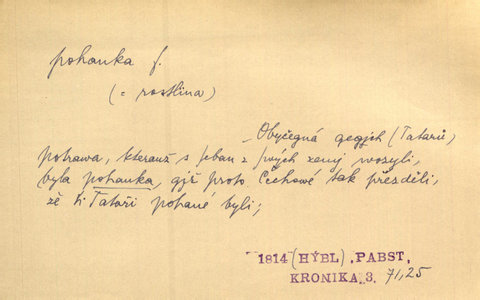 pohanka f.
(= rostlina)
– Obyčegná gegich (Tatarů)
potrawa, kterauž s sebau z swých zemj wozyli,
byla pohanka, gjž proto Čechowé tak přezděli,
zě ti Tataři pohané byli;
1814 (HÝBL), PABST,
KRONIKA 3. 71,25